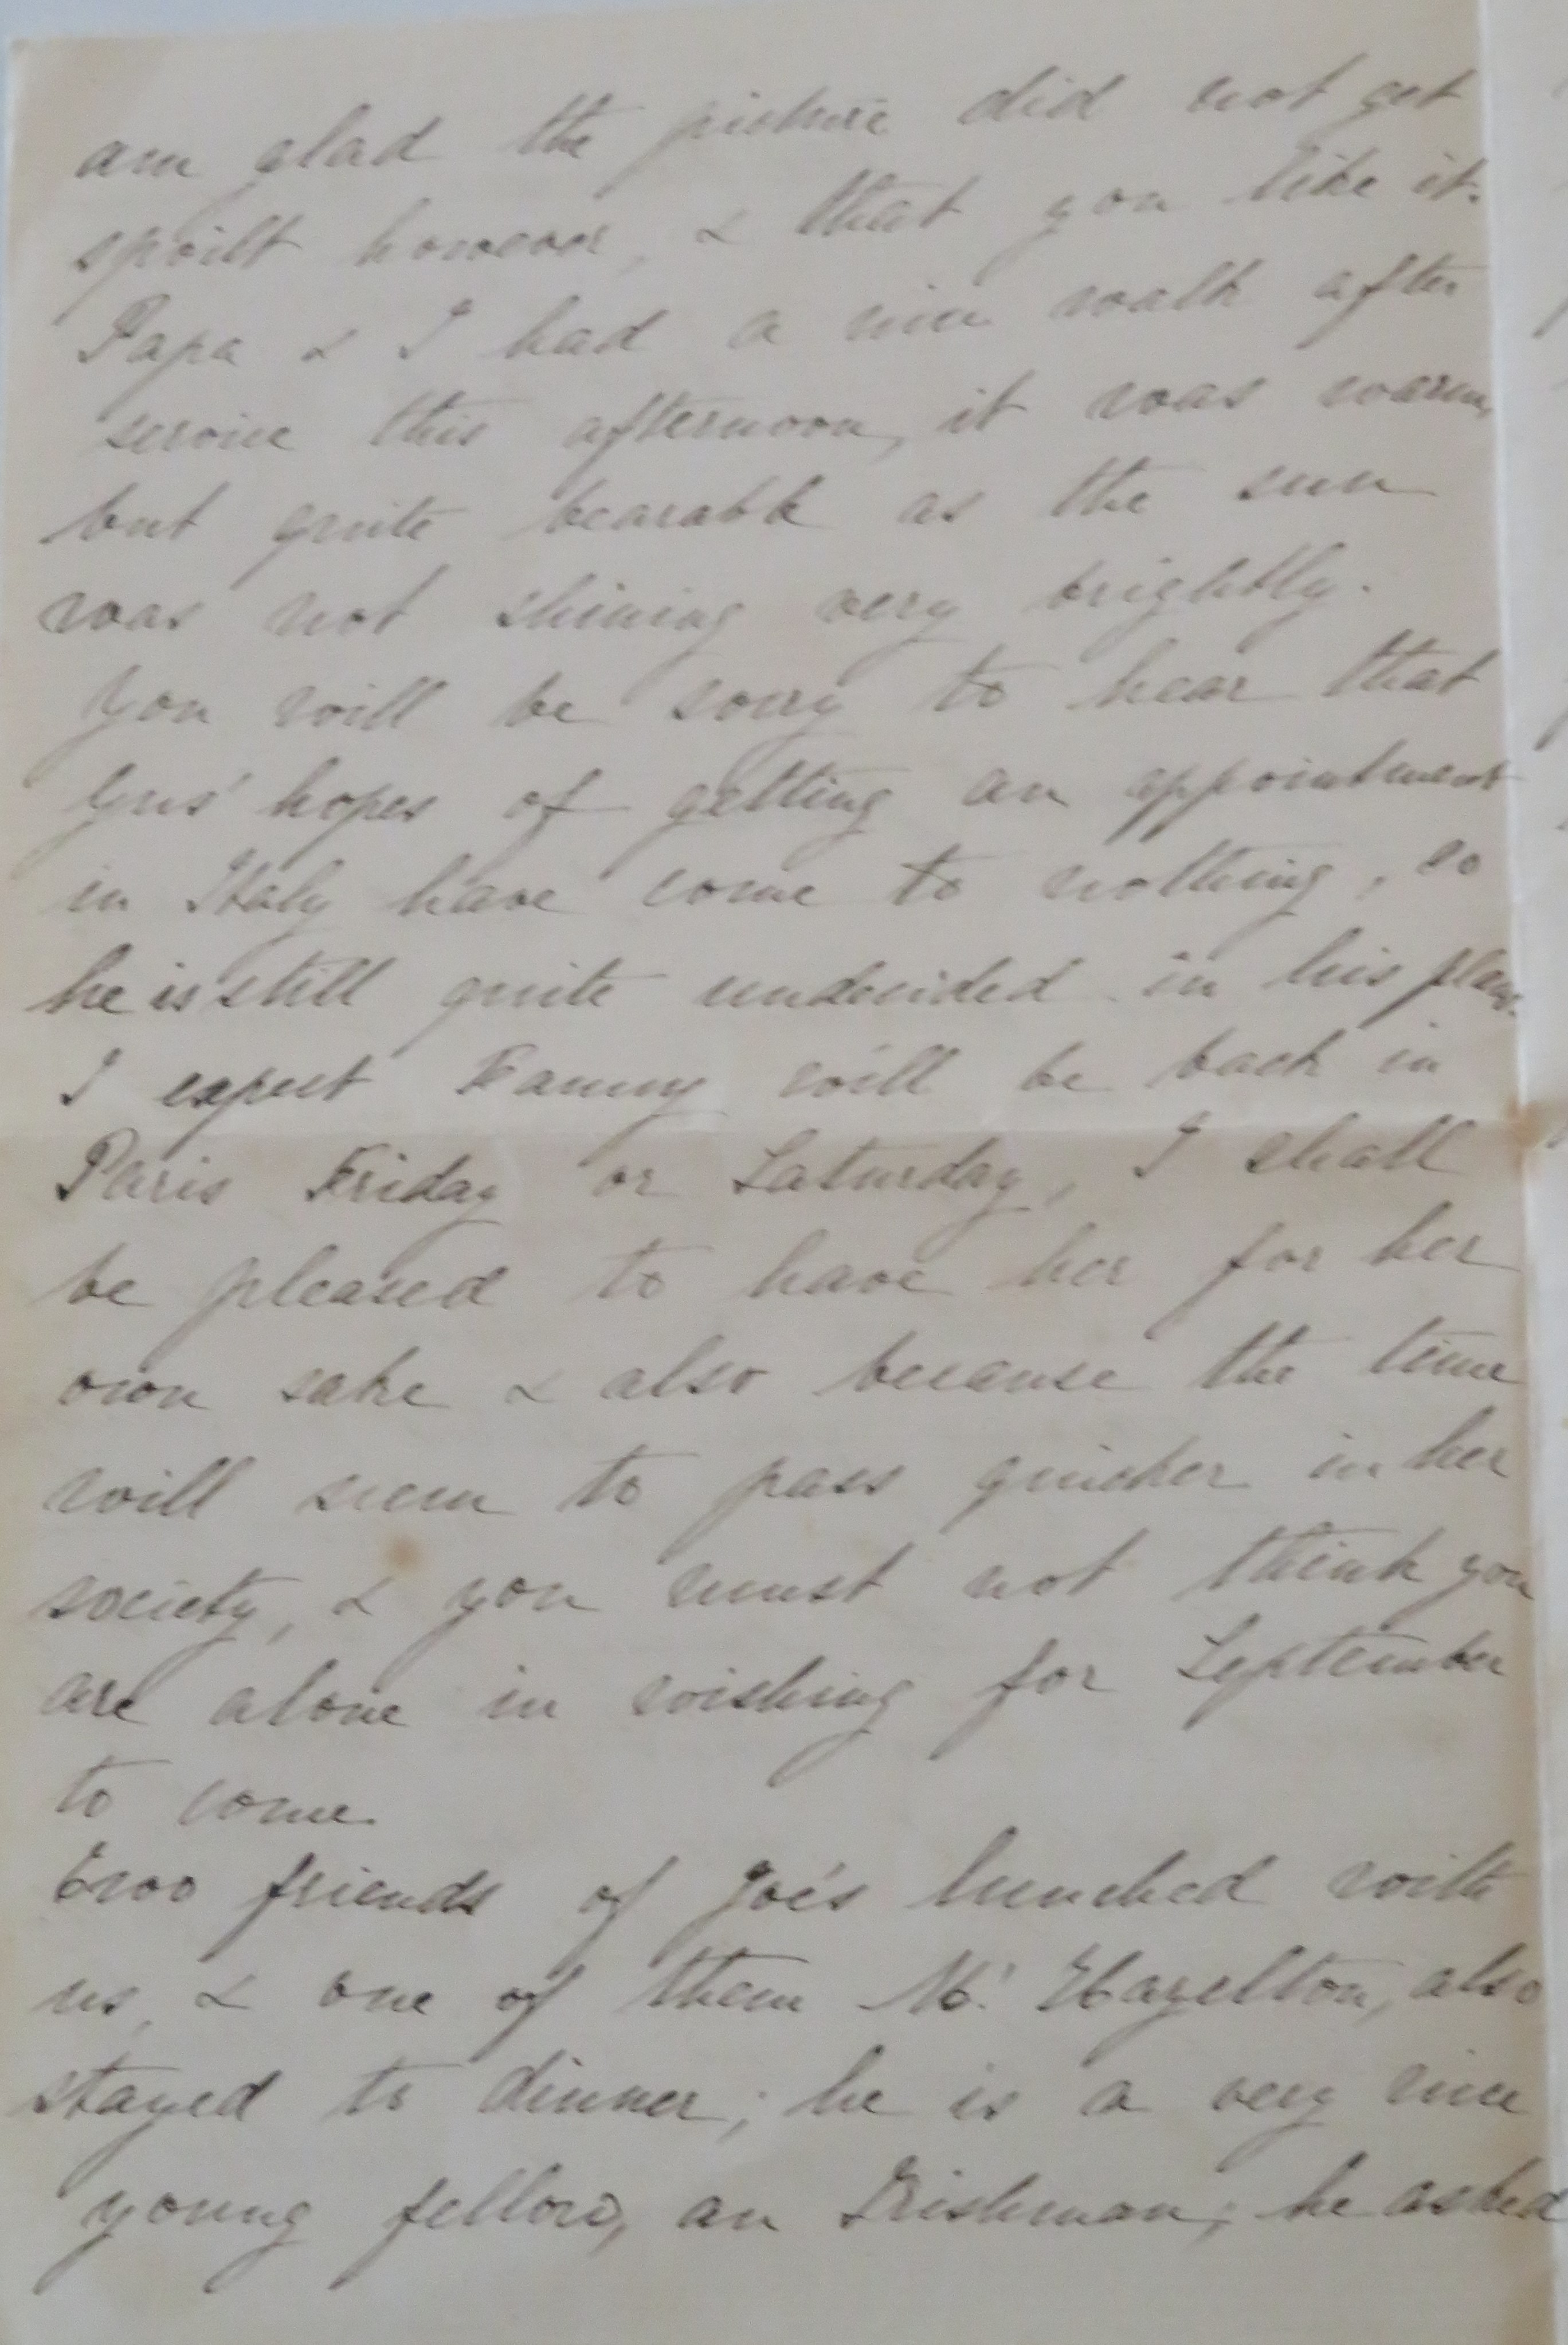 am glad the picture did not get
spoilt however, & that you like it.
Papa & I had a nice walk after
service this afternoon, it was warm,
but quite bearable as the sun
was not shining very brightly.
You will be sorry to hear that
Gus' hopes of getting an appointment
in Italy have come to nothing, so
he is still quite undecided in his plans.
I expect Fanny will be back in
Paris Friday or Saturday, I shall
be pleased to have her for her
own sake & also because the time
will seem to pass quicker in her
society, & you must not think you
are alone in wishing for September
to come.
Two friends of Joe's lunched with
us, & one of them Mr. Hazelton, also
stayed to dinner; he is a very nice
young fellow, an Irishman; he asked